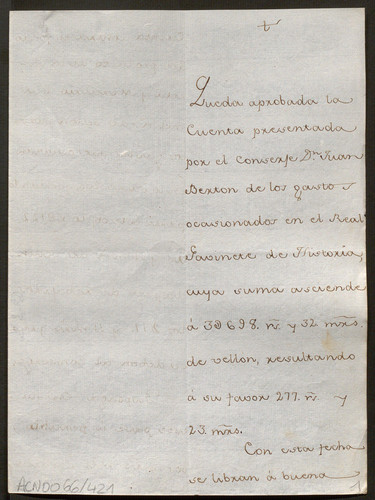 +
Queda aprobada la
Cuenta presentada
por el Conserje Dn. Juan
Bexton de los gastos
ocasionados en el Real
Gavinete de Historia,
cuya suma asciende
á 39698. rs. y 32. mrs.
de vellon, resultando
á su favor 277. rs. y
23. mrs.
Con esta fecha
se libran á buena
ACN0066/421
1